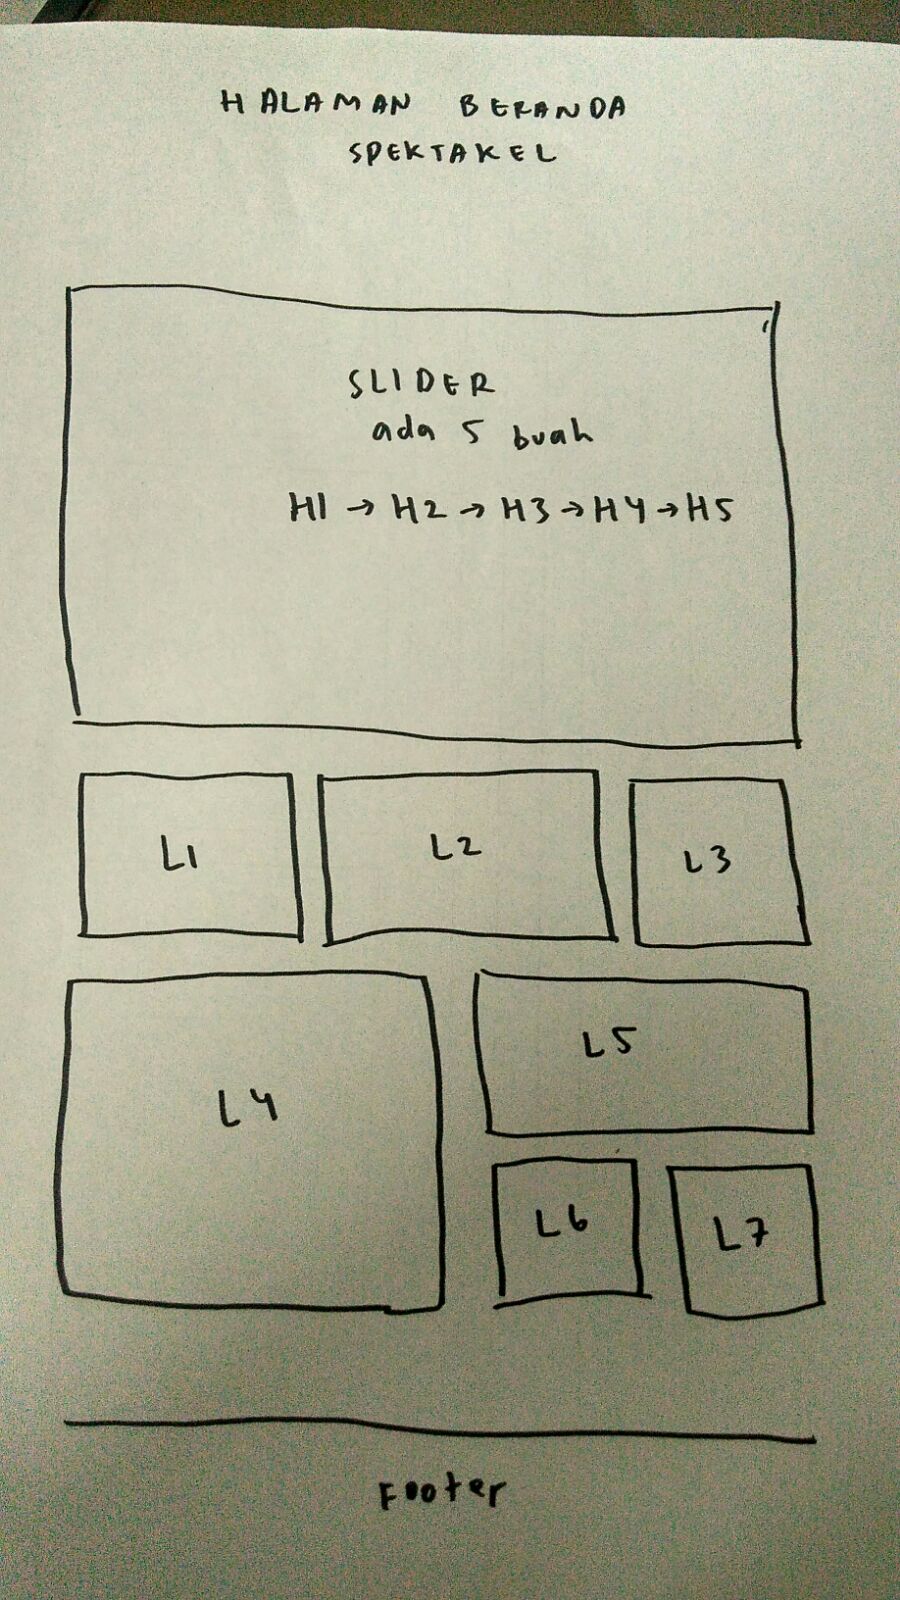 HALAMAN BERANDA
SPEKTAKEL
SLIDER
ada 5 buah
H1 → H2 → H3 → H4 → H5
L1 L2 L3
L4
L5
L6 L7
Footer